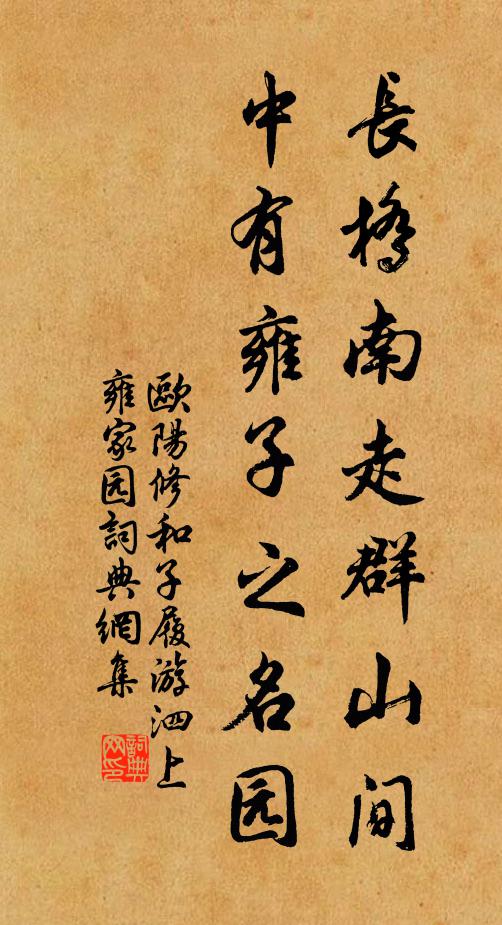 長橋南走群山間
中有雍子之名园
歐陽修和子履游泗上
雍家园詞典網集
詞典网印